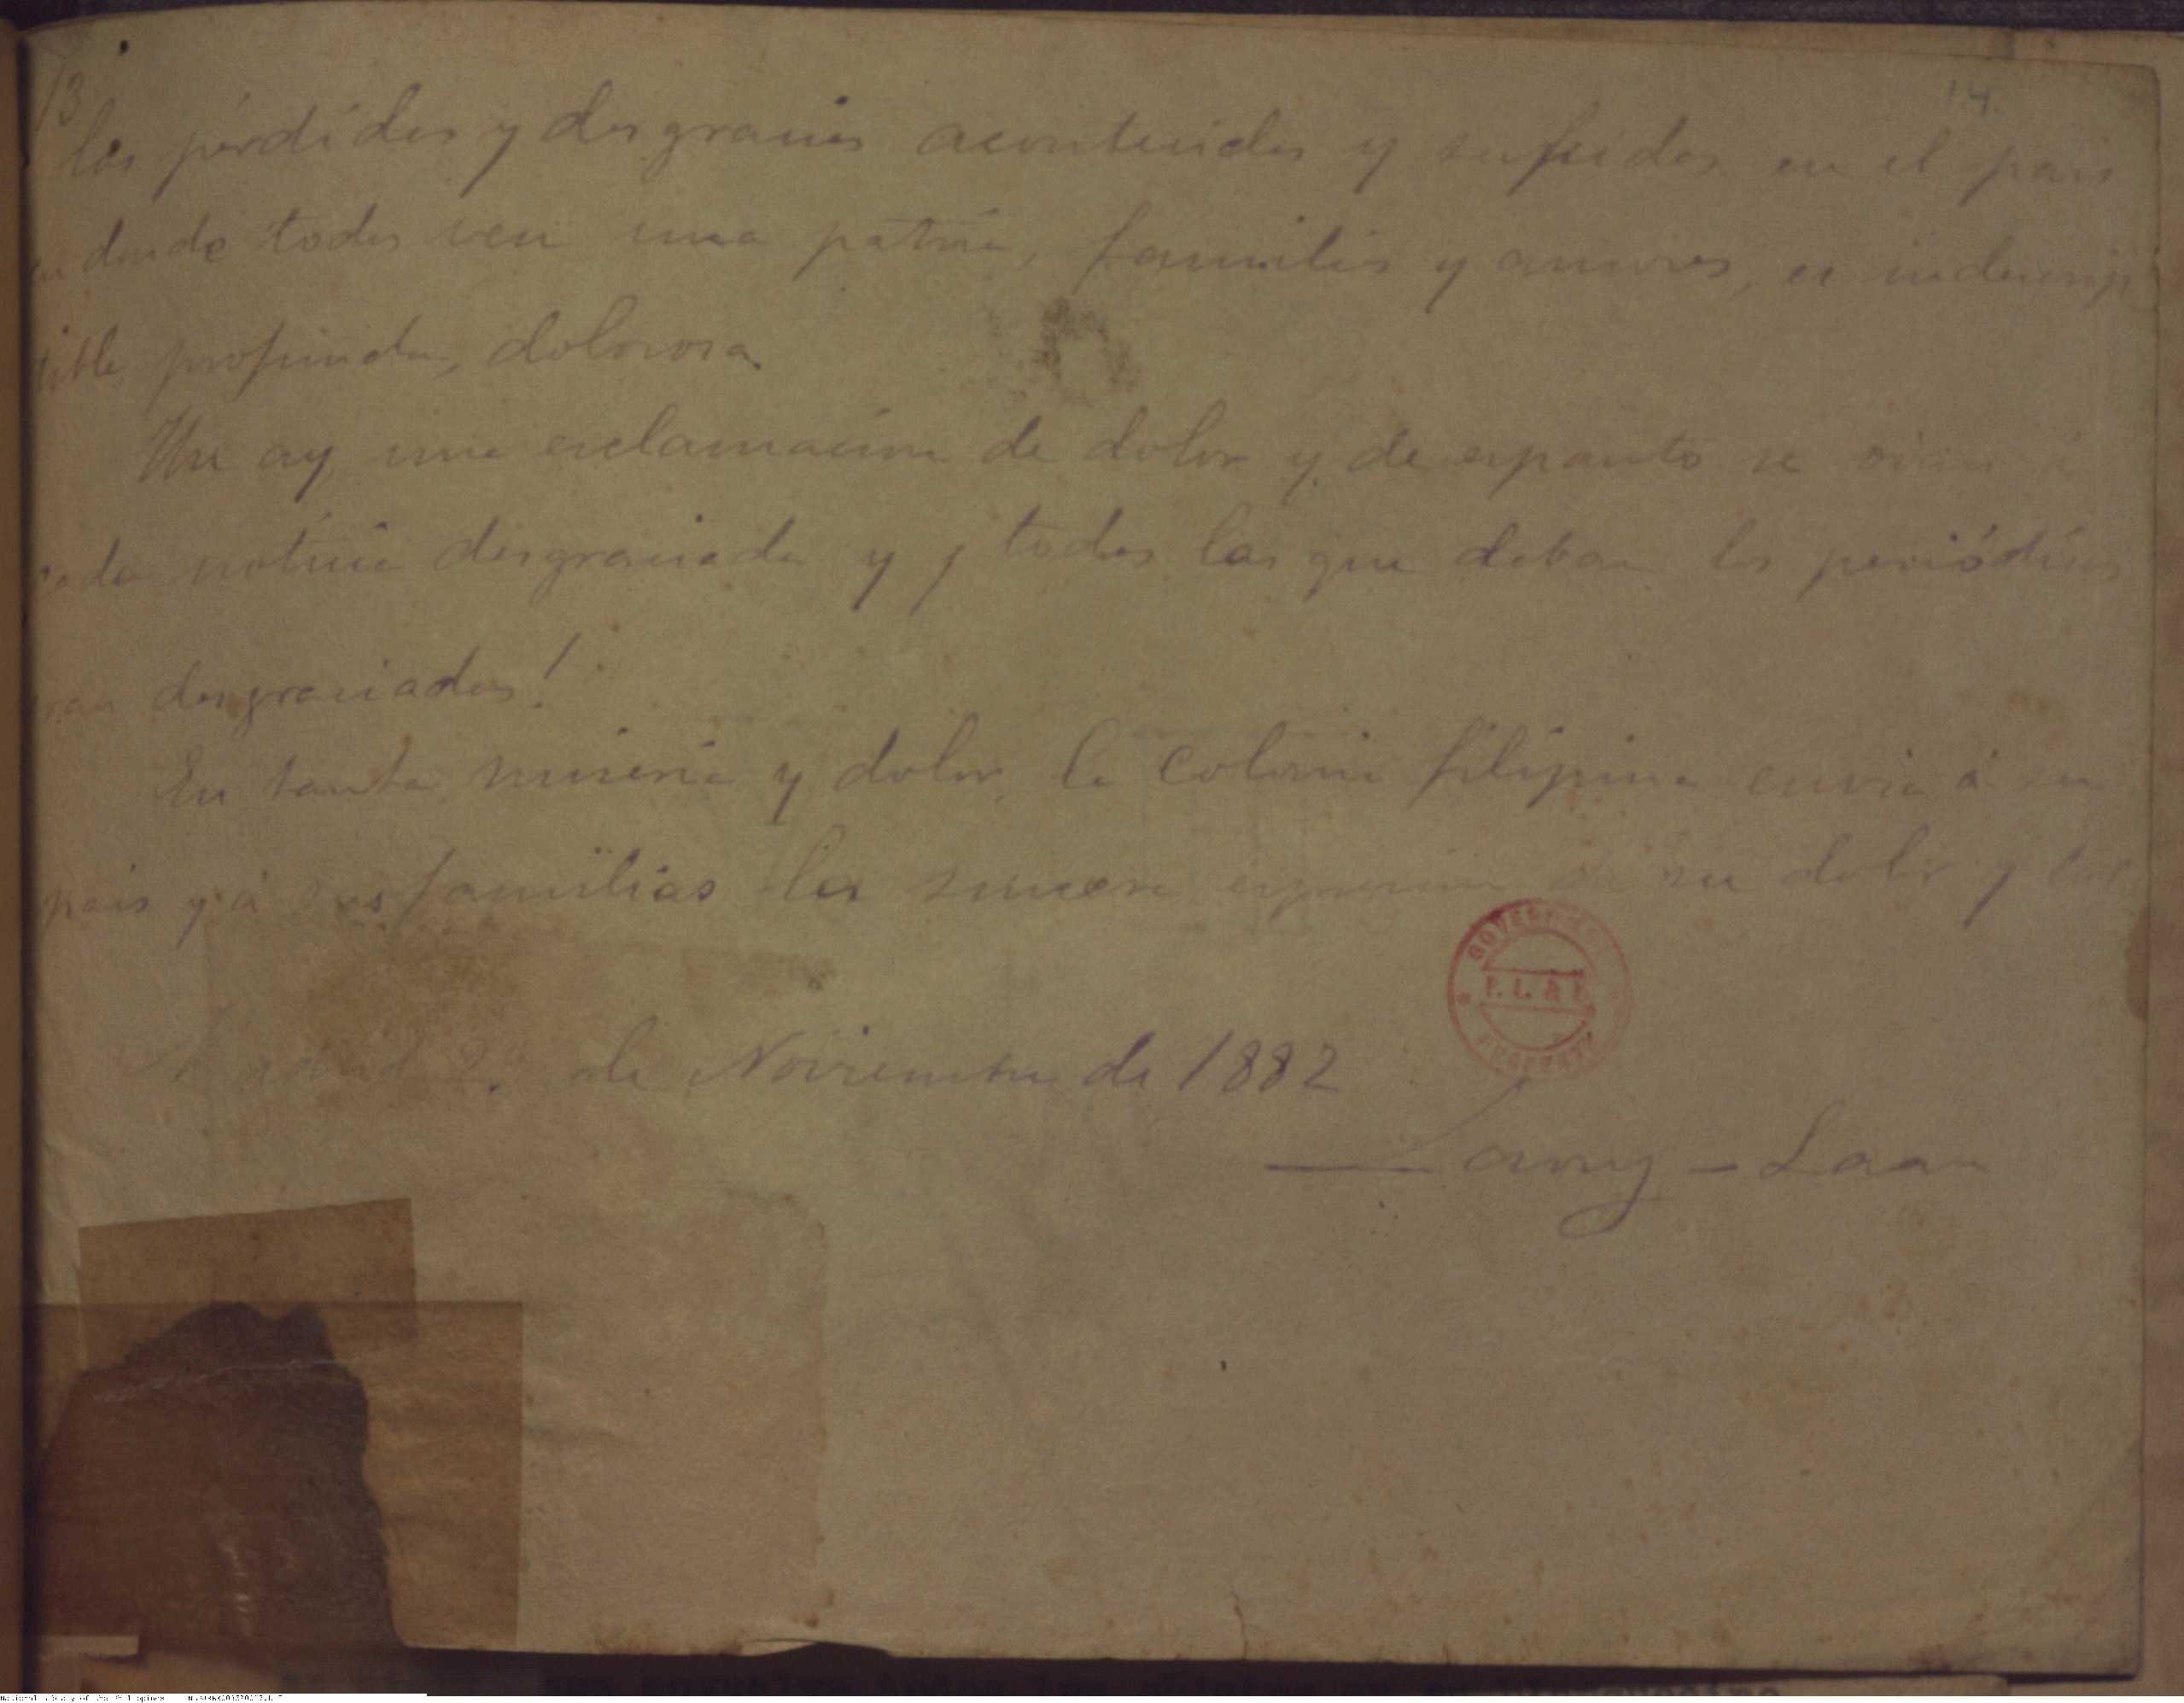 13
14.
las pérdidas y desgracias acontecidas y sufridas en el pais
en donde todos ven una patria, familias y amores, es indescrip
tible, profunda, dolorosa.
Un ay, una exclamacion de dolor y de espanto se oian á
cada noticia desgraciada y ¡ todas las que daban los periódicos
eran desgraciadas!
En tanta miseria y dolor, la Colonia filipina envia á su
pais y á sus familias la sincera expresion de su dolor y
Madrid de Noviembre de 1882
Laong-Laan
P. L. & M.